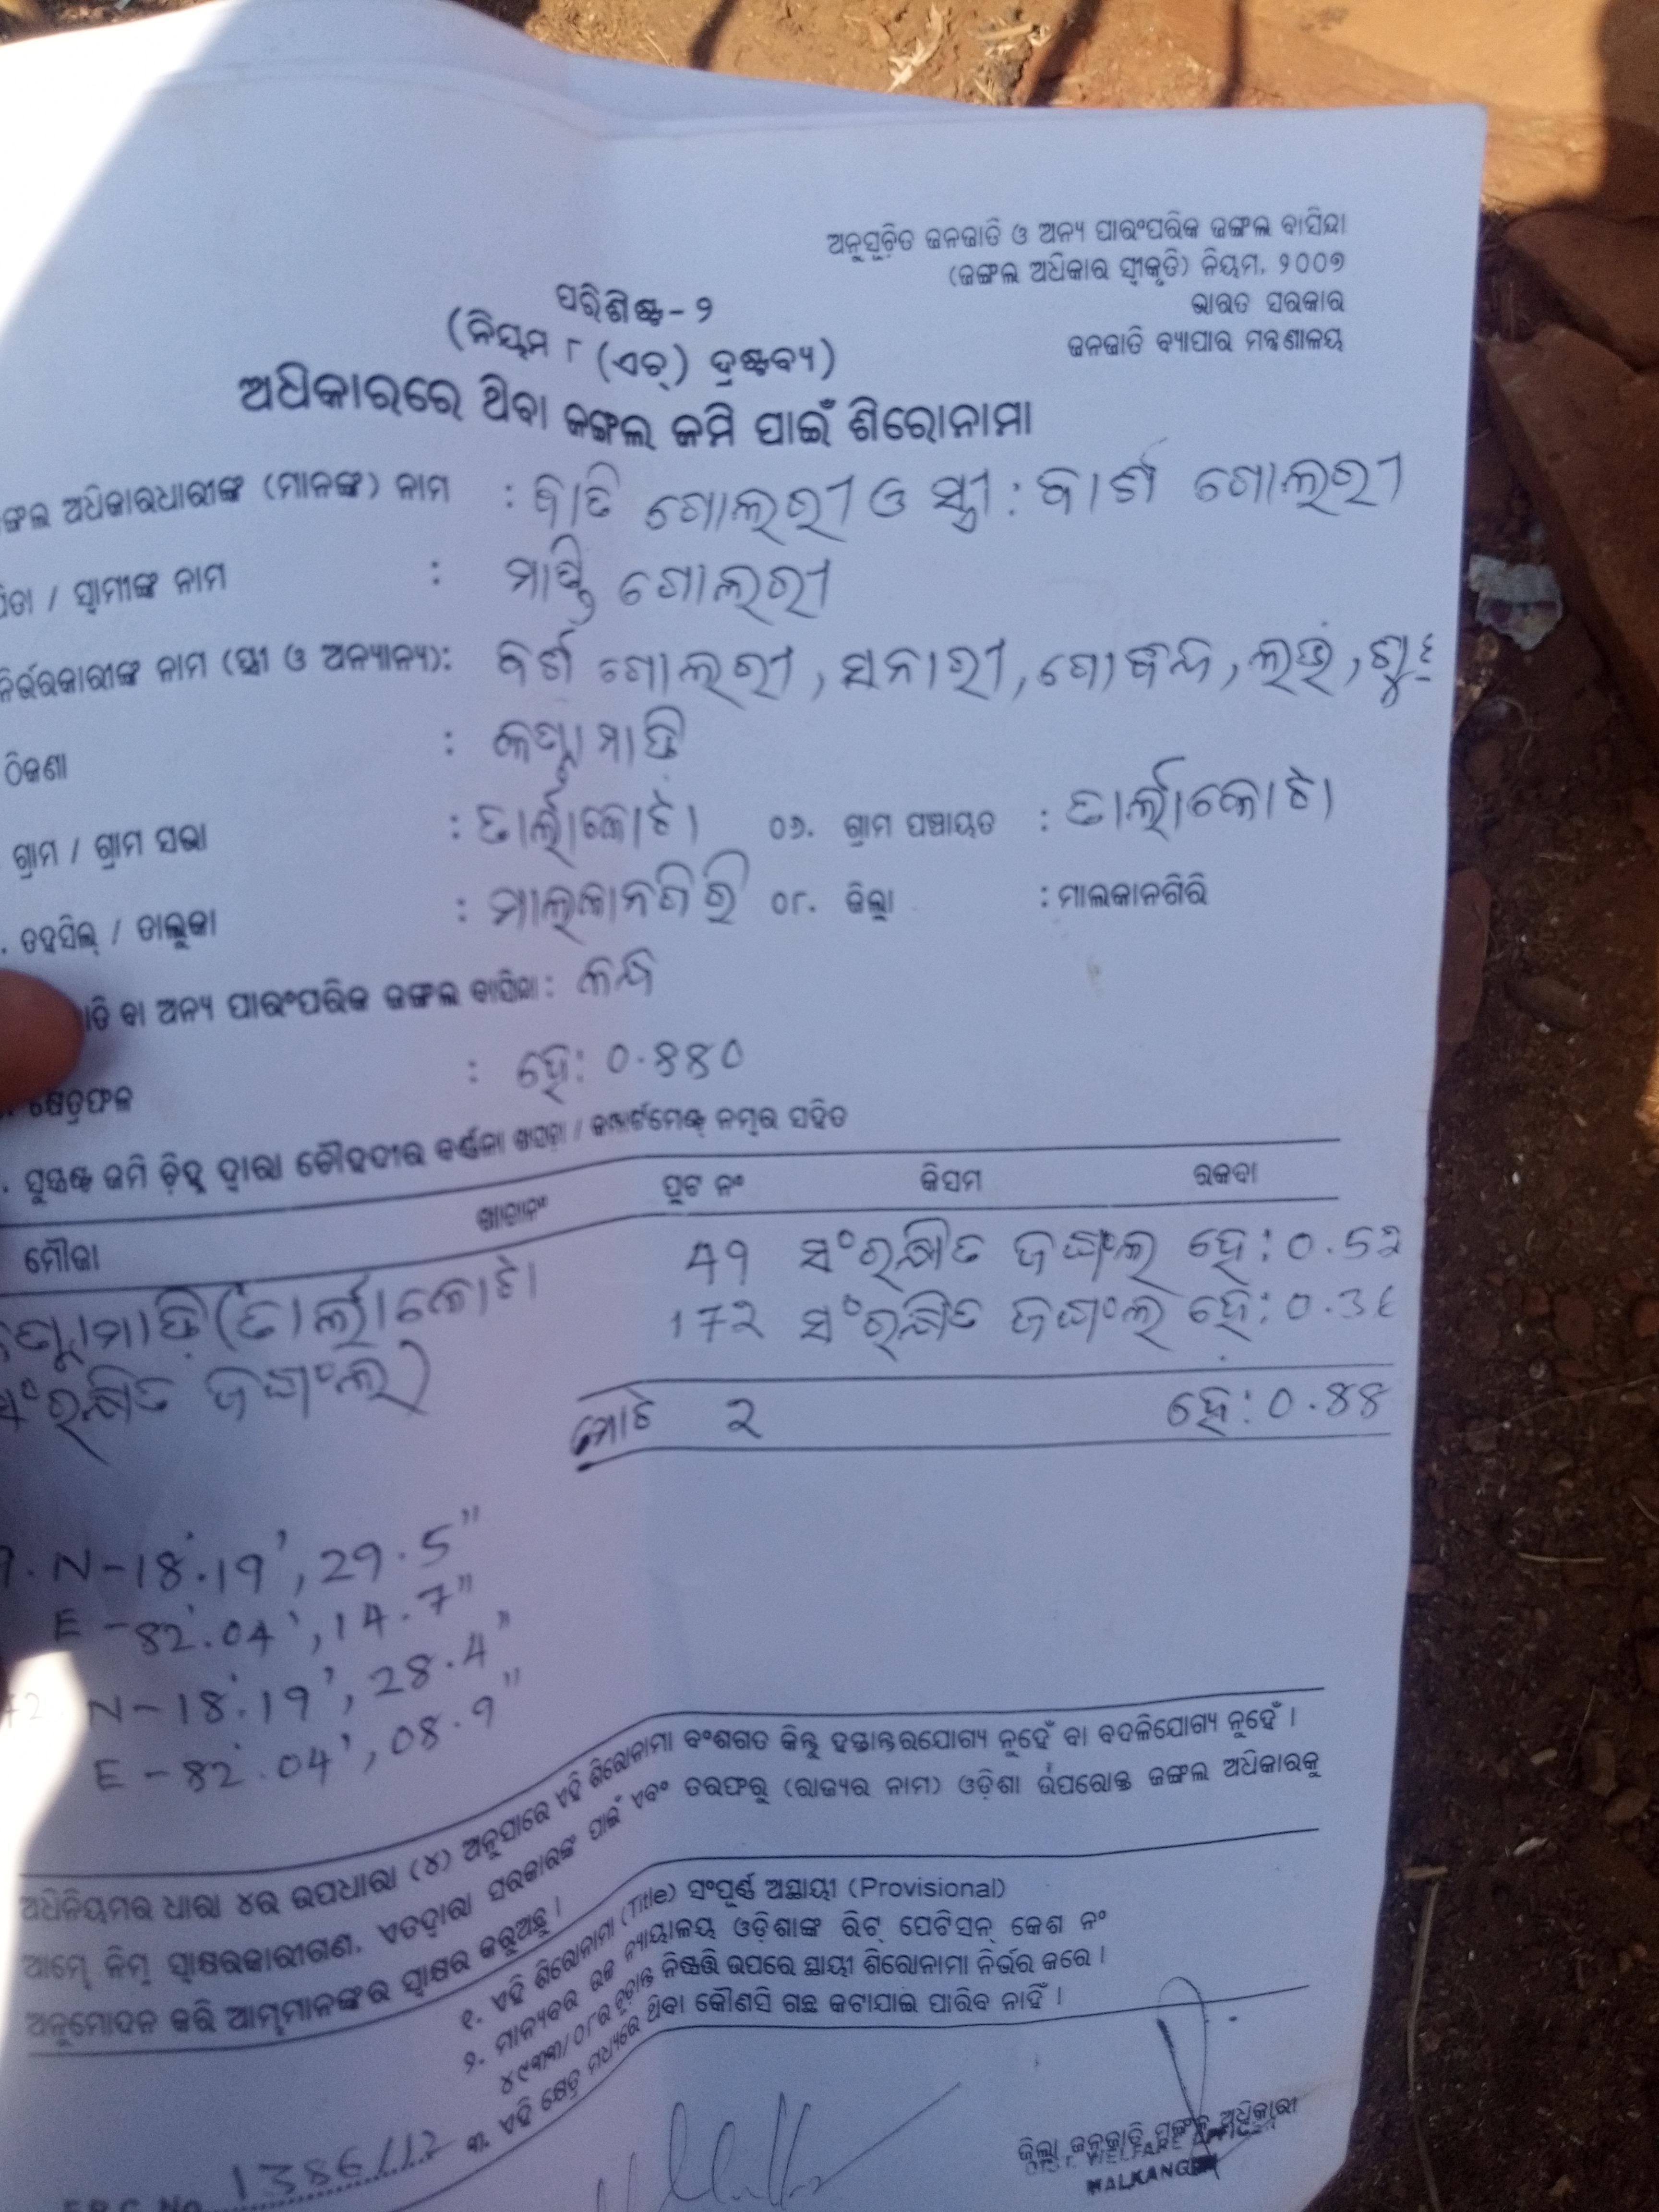 ଅନୁସୂଚିତ ଜନଜାତି ଓ ଅନ୍ୟ ପାରଂପରିକ ଜଙ୍ଗଲ ବାସିନ୍ଦା
(ଜଙ୍ଗଲ ଅଧିକାର ସ୍ୱୀକୃତି) ନିୟମ, ୨୦୦୭
ଭାରତ ସରକାର
ଜନଜାତି ବ୍ୟାପାର ମନ୍ତ୍ରଣାଳୟ
ପରିଶିଷ୍ଟ - ୨
(ନିୟମ ୮ (ଏଚ୍) ଦ୍ରଷ୍ଟବ୍ୟ)
ଅଧିକାରରେ ଥିବା ଜଙ୍ଗଲ ଜମି ପାଇଁ ଶିରୋନାମା
ଙ୍ଗଲ ଅଧିକାରଧାରୀଙ୍କ (ମାନଙ୍କ) ନାମ : ଗୋଲରୀ ଓ ସ୍ତ୍ରୀ : ଗୋଲରୀ
ପିତା / ସ୍ୱାମୀଙ୍କ ନାମ : ଗୋଲରୀ
ନିର୍ଭରକାରୀଙ୍କ ନାମ (ସ୍ତ୍ରୀ ଓ ଅନ୍ୟାନ୍ୟ): ଗୋଲରୀ,
ଠିକଣା :
ଗ୍ରାମ / ଗ୍ରାମ ସଭା : ତାର୍ଲାକୋଟା ୦୬. ଗ୍ରାମ ପଞ୍ଚାୟତ : ତାର୍ଲାକୋଟା
. ତହସିଲ୍ / ତାଲୁକା : ମାଲକାନଗିରି ୦୮. ଜିଲ୍ଲା : ମାଲକାନଗିରି
ବା ଅନ୍ୟ ପାରଂପରିକ ଜଙ୍ଗଲ ବାସିନ୍ଦା : କନ୍ଧ
କ୍ଷେତ୍ରଫଳ : ହେ: 0.880
. ସୁସ୍ପଷ୍ଟ ଜମି ଚିହ୍ନ ଦ୍ୱାରା ଚୌହଦୀର ବର୍ଣ୍ଣନା ଖସଡ଼ା / କମ୍ପାର୍ଟମେଣ୍ଟ ନମ୍ବର ସହିତ
ମୌଜା ଖାତାନଂ ପ୍ଲଟ ନଂ କିସମ ରକବା
(ତାର୍ଲାକୋଟା 49 ସଂରକ୍ଷିତ ଜଙ୍ଗଲ ହେ: 0.52
ସଂରକ୍ଷିତ ଜଙ୍ଗଲ) 172 ସଂରକ୍ଷିତ ଜଙ୍ଗଲ ହେ: 0.36
ମୋଟ 2 ହେ: 0.88
9. N-18°.19', 29.5"
E-82°.04', 14.7"
72. N-18°.19', 28.4"
E-82°.04', 08.9"
ଅଧିନିୟମର ଧାରା ୪ର ଉପଧାରା (୪) ଅନୁସାରେ ଏହି ଶିରୋନାମା ବଂଶଗତ କିନ୍ତୁ ହସ୍ତାନ୍ତରଯୋଗ୍ୟ ନୁହେଁ ବା ବଦଳିଯୋଗ୍ୟ ନୁହେଁ ।
ଆମ୍ଭେ ନିମ୍ନ ସ୍ୱାକ୍ଷରକାରୀଗଣ, ଏତଦ୍ୱାରା ସରକାରଙ୍କ ପାଇଁ ଏବଂ ତରଫରୁ (ରାଜ୍ୟର ନାମ) ଓଡ଼ିଶା ଉପରୋକ୍ତ ଜଙ୍ଗଲ ଅଧିକାରକୁ
ଅନୁମୋଦନ କରି ଆମ୍ଭମାନଙ୍କର ସ୍ୱାକ୍ଷର କରୁଅଛୁ ।
୧. ଏହି ଶିରୋନାମା (Title) ସଂପୂର୍ଣ୍ଣ ଅସ୍ଥାୟୀ (Provisional)
୨. ମାନ୍ୟବର ଉଚ୍ଚ ନ୍ୟାୟାଳୟ ଓଡ଼ିଶାଙ୍କ ରିଟ୍ ପେଟିସନ୍ କେଶ ନଂ
୪୯୩୩/୦୮ର ଚୂଡ଼ାନ୍ତ ନିଷ୍ପତ୍ତି ଉପରେ ସ୍ଥାୟୀ ଶିରୋନାମା ନିର୍ଭର କରେ ।
୩. ଏହି କ୍ଷେତ୍ର ମଧ୍ୟରେ ଥିବା କୌଣସି ଗଛ କଟାଯାଇ ପାରିବ ନାହିଁ ।
1386/12
ଜିଲ୍ଲା ଜନଜାତି ମଙ୍ଗଳ ଅଧିକାରୀ
DIST. WELFARE OFFICER
MALKANGIRI